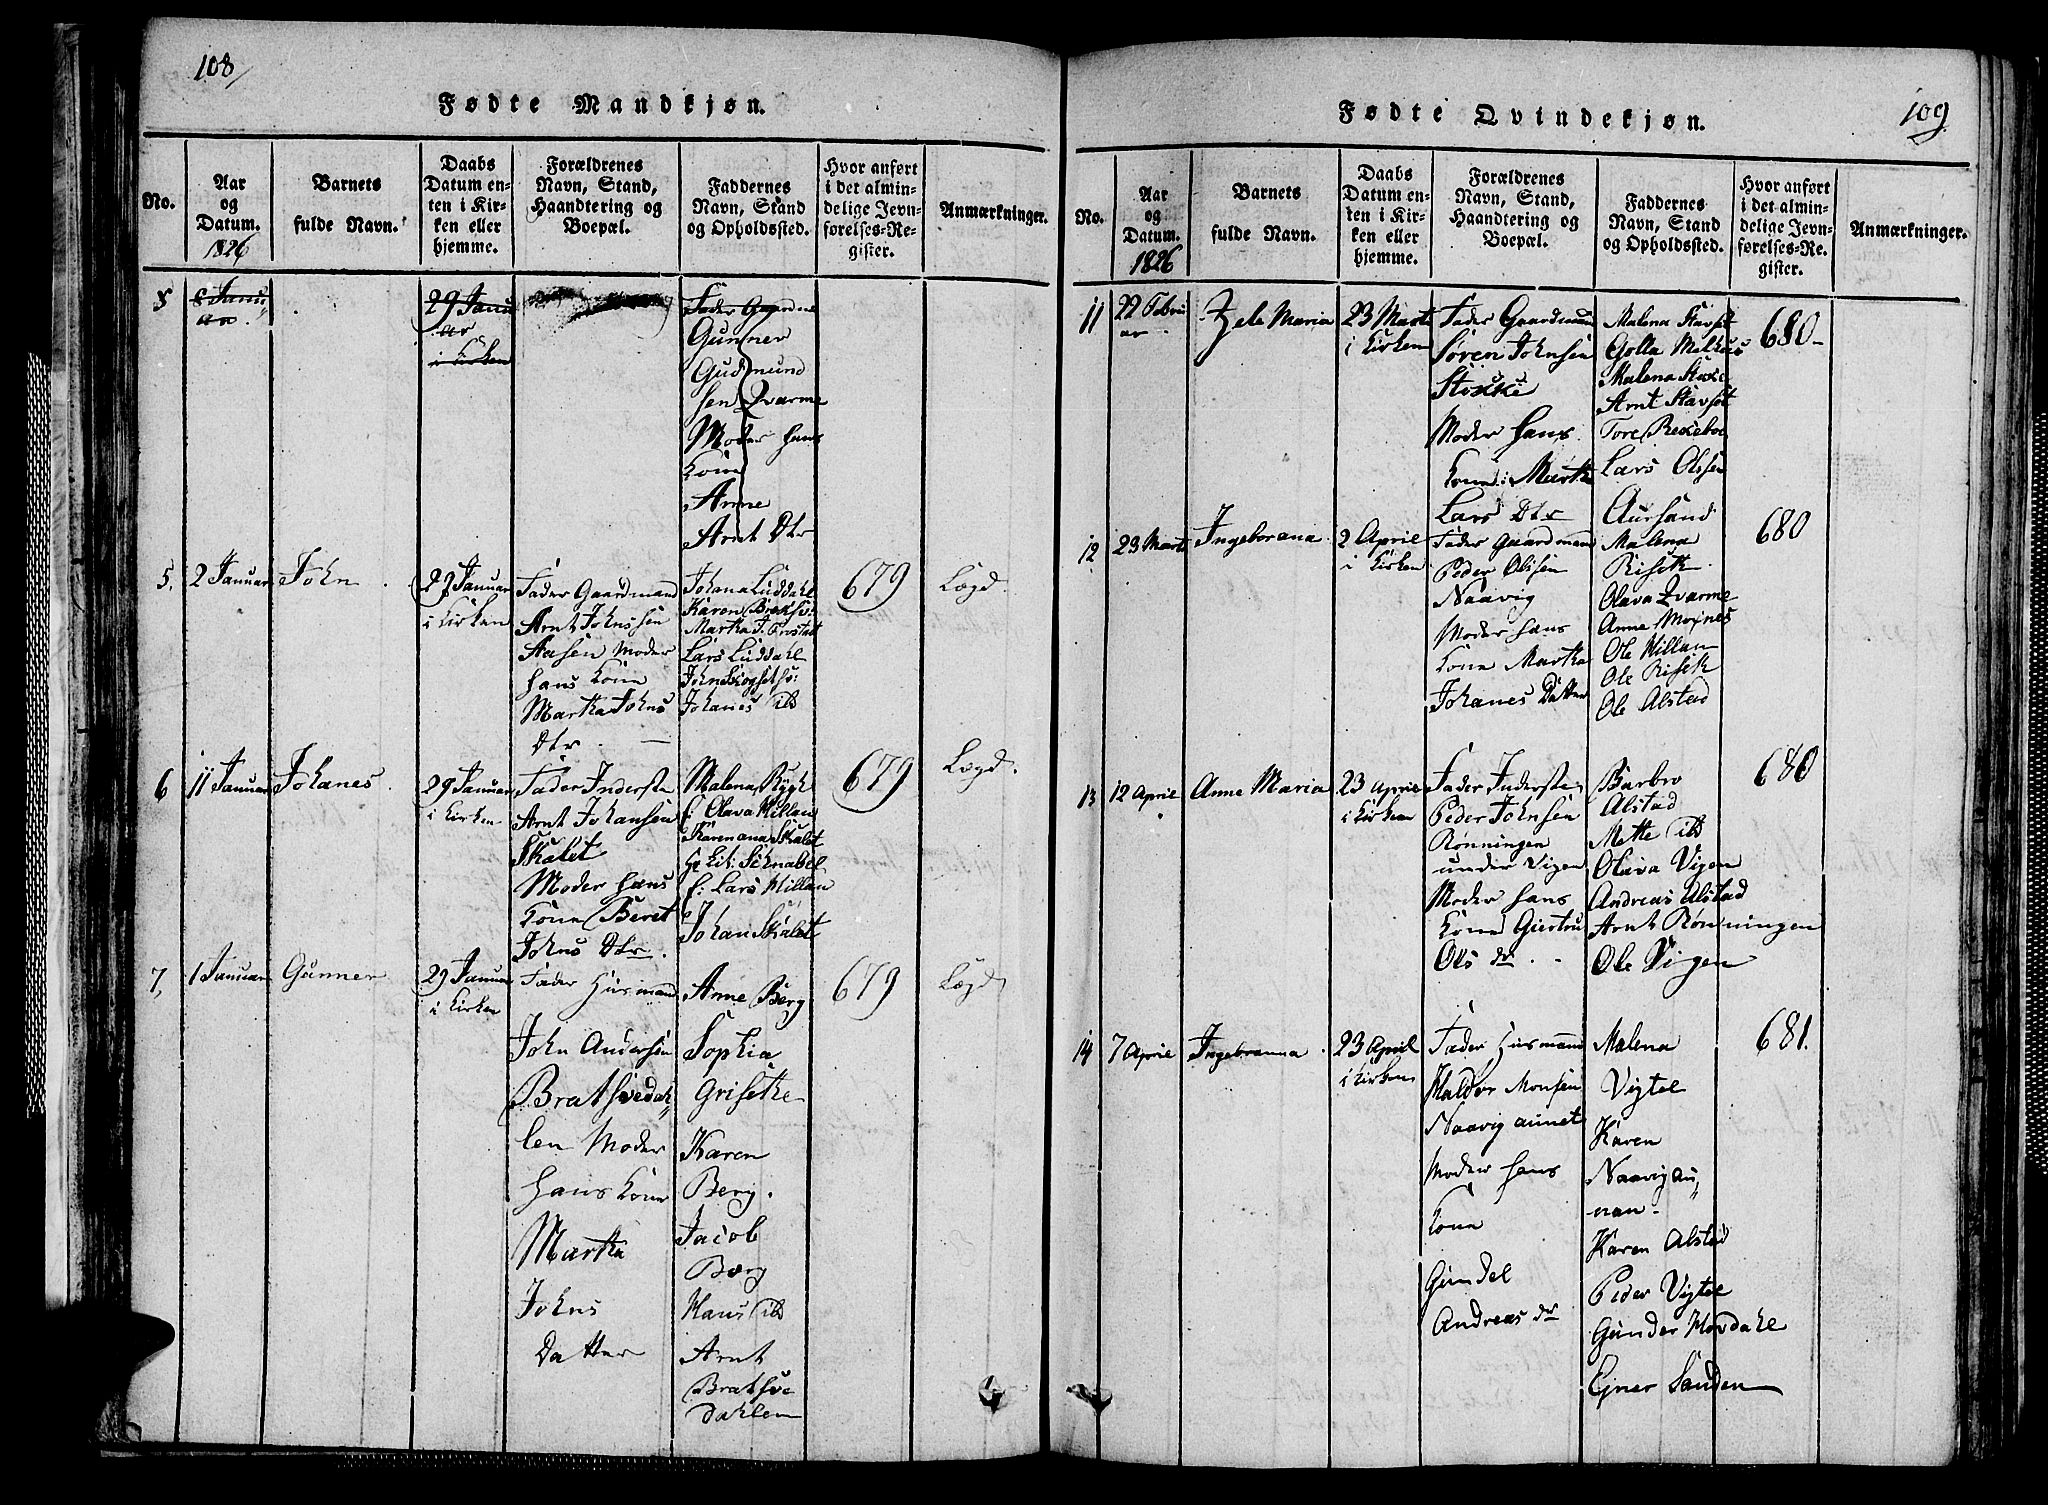 108/
Fødte Mandkjøn.
No.
Aar
og
Datum.
1826
Barnets
fulde Navn.
Daabs
Datum en-
ten i Kir-
ken eller
hjemme.
Forældrenes
Navn, Stand,
Haandtering og
Boepæl.
Faddernes
Navn, Stand
og Opholdssted.
Hvor anført
i det almin-
delige Jevn-
førelses-Re-
gister.
Anmærkninger.
5
8 Janu
ar.
29 Janu
ar
i Kirken
Fader Gaardm
Gunner
Gudmund
sen Qvarme
Moder hans
Kone
Anne
Arnt Dtr
5.
2 Januar
John
29 Januar
i Kirken
Fader Gaardmand
Arnt Johnssen
Aasen Moder
hans Kone
Martha Johns
Dtr
Johana Luddahl
Karen
Martha J.
Lars Luddahl
Johanes ibd
679
Lægd.
6
11 Januar
Johanes.
29 Januar
i Kirken
Fader Inderste
Arnt Johansen
Skalet
Moder hans
Kone Beret
Johns Dtr.
Malena Rygh
f: Olava Millan
Karenana Skalet
f: Lars Millan
Johan Skalet
679
Lægd.
7,
1 Januar
Gunner
29 Januar
i Kirken
Fader Husmand
John Andersen
Bratsvedah„
len Moder
hans Kone
Martha
Johns
Datter
Anne Berg
Sophia
Grisethe
Karen
Berg.
Jacob
Berg
Hans ibd
Arnt
Bratsve
dahlen
679
Lægd
109
Fødte Qvindekjøn.
No.
Aar
og
Datum.
1826
Barnets
fulde Navn.
Daabs
Datum en-
ten i Kir-
ken eller
hjemme.
Forældrenes
Navn, Stand,
Haandtering og
Boepæl.
Faddernes
Navn, Stand
og Opholdssted.
Hvor anført
i det almin-
delige Jevn-
førelses-Re-
gister.
Anmærkninger.
11
22 Febru
ar
Zele Maria
23 Marts
i Kirken
Fader Gaardmann
Søren Johnsen
Stokke
Moder hans
Kone: Martha
Lars Dtr
Malena Stavset
Golla Melhuus
Malena Stokke
Arnt Stavset
Tore
Lars Olssen
Aursand
680
12
23 Marts
Ingeborana
2 April
i Kirken
Fader Gaardmann
Peder Olssen
Naavig
Moder hans
Kone Martha
Johanes Datter
Malena
Riseth
Olava Qvarme
Anne Moxnes
Ole Millan
Ole Riseth
Ole Alstad
680
13
12 April
Anne Maria
23 April
i Kirken
Fader Inderste
Peder Johnsen
Rønningen
under Vigen
Moder hans
Kone Giertru
Ols dr
Barbro
Alstad
Mette ibd
Olava Vigen
Andreas Alstad
Arnt Rønningen
Ole Vigen
680
14
7 April
Ingebranna
23 April
i Kirken
Fader Husmann
Haldor Monsen
Naavig aunet
Moder hans
Kone
Gundel
Andreas dr
Malena
Vigtel
Karen
Naavig au„
nan.
Karen Alstad
Peder Vigtel
Gunder Hovdahl
Ejner Sanden
681.